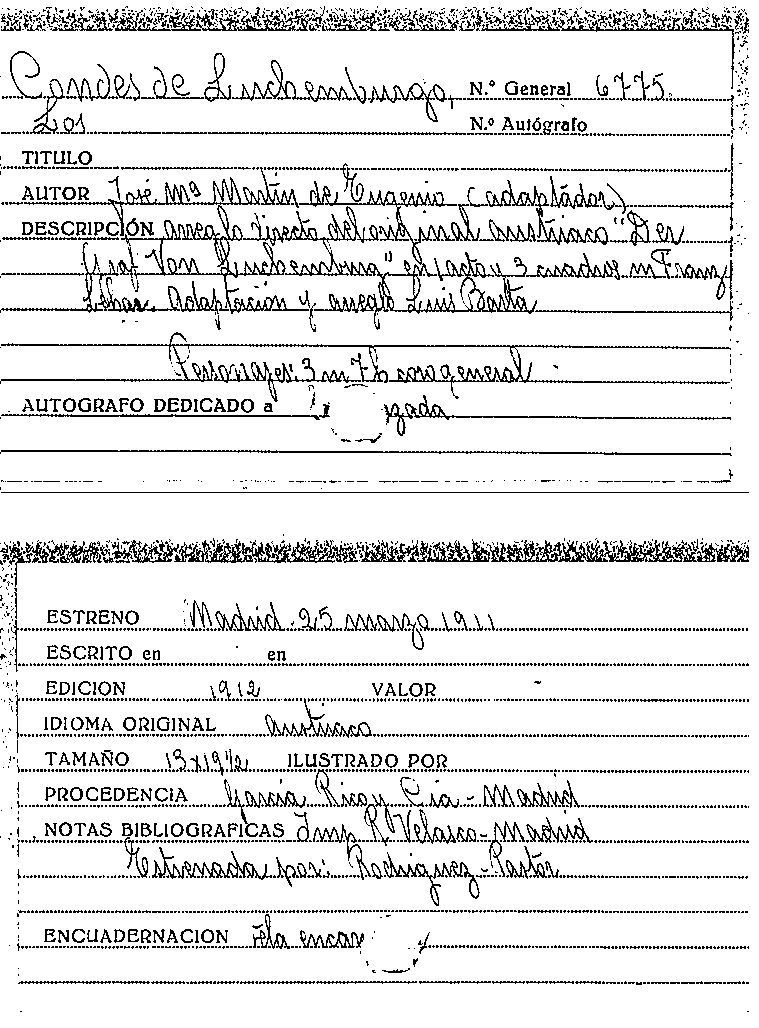 Condes de Luchemburgo, N.º General 6775.
Los N.º Autógrafo
TITULO
AUTOR José Mª Martín de Eugenio (adaptador)
DESCRIPCIÓN arreglo directo del original austriaco "Der
Graf Von Luchemburg" en 1 acto y 3 cuadros m Franz
Lehar. Adaptación y arreglo Luis Barta
Personajes: 3 m 7 h coro general
AUTOGRAFO DEDICADO a
ESTRENO Madrid. 25 marzo 1911
ESCRITO en en
EDICION 1912 VALOR -
IDIOMA ORIGINAL austriaco
TAMAÑO 13x19½ ILUSTRADO POR
PROCEDENCIA García Rico y Cia - Madrid
NOTAS BIBLIOGRAFICAS Imp R. Velasco - Madrid
Estrenada por: Rodriguez - Pastor
ENCUADERNACION tela